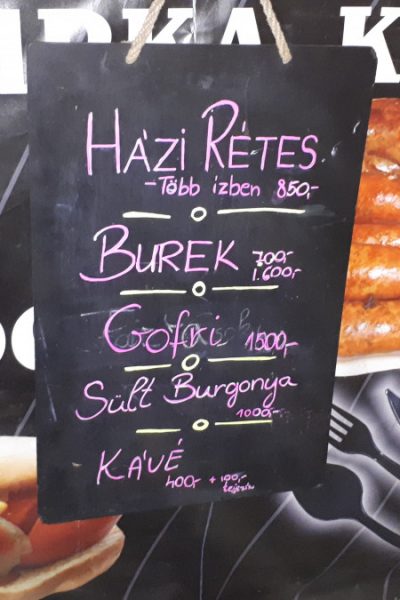 HÁZI RÉTES
-Több ízben 850,-
BUREK 700,-
1.600,-
Gofri 1500,-
Sült Burgonya
1000,-
KÁVÉ
400,- + 100,-